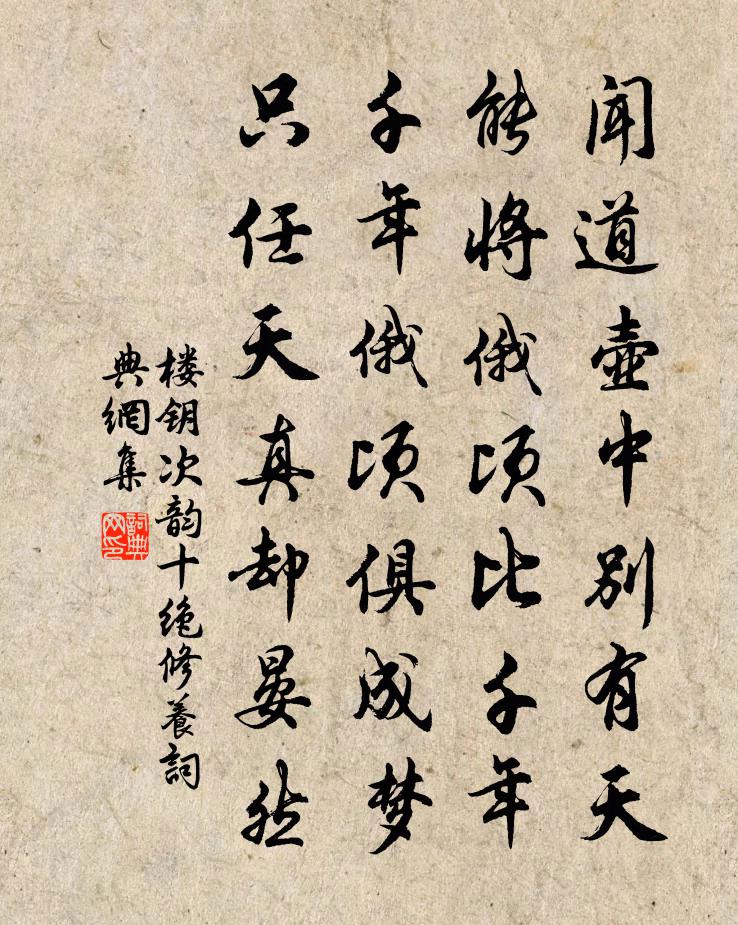 闻道壶中别有天
能将俄顷比千年
千年俄顷俱成梦
只任天真却晏然
楼钥次韵十绝修养词
典網集
詞典網印